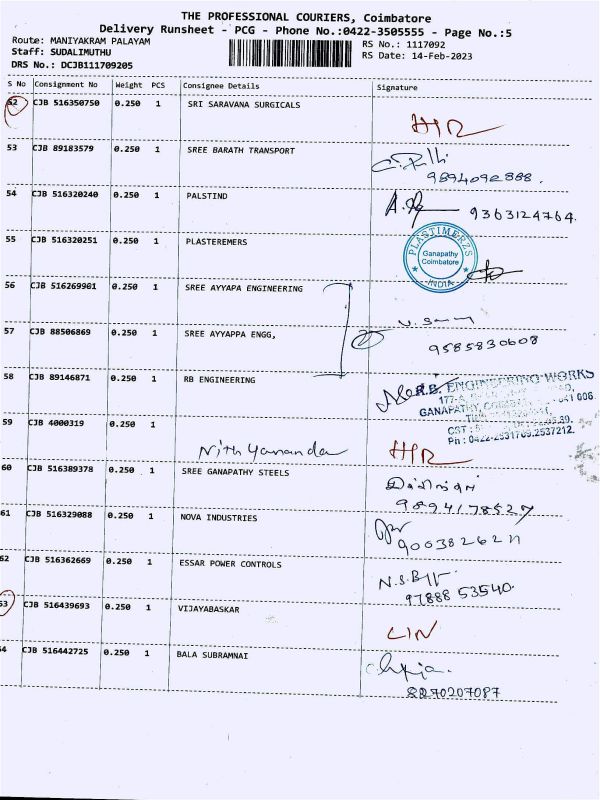 THE PROFESSIONAL COURIERS, Coimbatore
Delivery Runsheet - PCG - Phone No.:0422-3505555 - Page No.:5
Route: MANIYAKRAM PALAYAM
RS No.: 1117092
Staff: SUDALIMUTHU
RS Date: 14-Feb-2023
DRS No.: DCJB111709205
S No Consignment No Weight PCS Consignee Details Signature
52 CJB 516350750 0.250 1 SRI SARAVANA SURGICALS
53 CJB 89183579 0.250 1 SREE BARATH TRANSPORT
9894092888.
54 CJB 516320240 0.250 1 PALSTIND
9363124764.
55 CJB 516320251 0.250 1 PLASTEREMERS
PLASTIMERZS
Ganapathy
Coimbatore
INDIA
56 CJB 516269901 0.250 1 SREE AYYAPA ENGINEERING
57 CJB 88506869 0.250 1 SREE AYYAPPA ENGG,
9585830608
58 CJB 89146871 0.250 1 RB ENGINEERING
R.B. ENGINEERING WORKS
GANAPATHY,
Ph : 0422-2531769.2537212.
59 CJB 4000319 0.250 1
Nithyananda
60 CJB 516389378 0.250 1 SREE GANAPATHY STEELS
9894178527
61 CJB 516329088 0.250 1 NOVA INDUSTRIES
62 CJB 516362669 0.250 1 ESSAR POWER CONTROLS
97888 53540
63 CJB 516439693 0.250 1 VIJAYABASKAR
LIN
64 CJB 516442725 0.250 1 BALA SUBRAMNAI